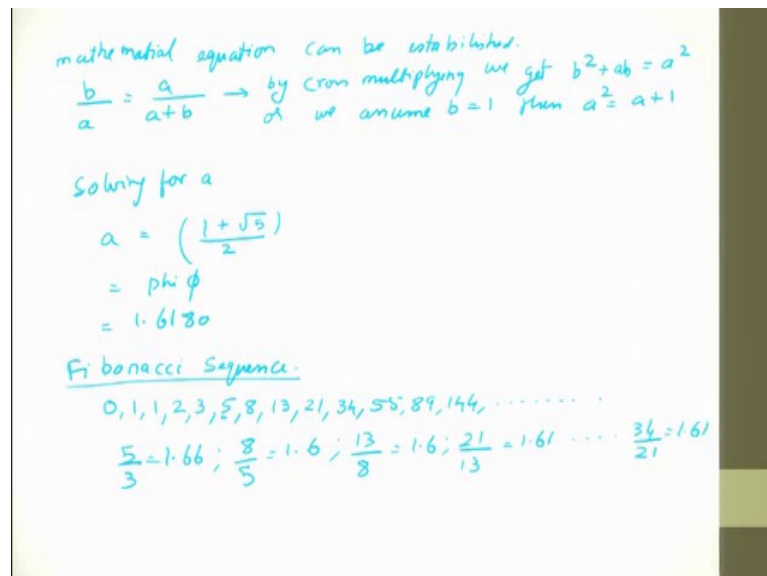 mathematial equation can be establilshed.
b/a = a/(a+b) → by cross multiplying we get b²+ab = a²
of we assume b = 1 then a² = a+1
Solving for a
a = ((1 + √5)/2)
= phi ϕ
= 1.6180
Fibonacci Sequence.
0, 1, 1, 2, 3, 5, 8, 13, 21, 34, 55, 89, 144, ........
5/3 = 1.66 ; 8/5 = 1.6 ; 13/8 = 1.6 ; 21/13 = 1.61 .... 34/21 = 1.61